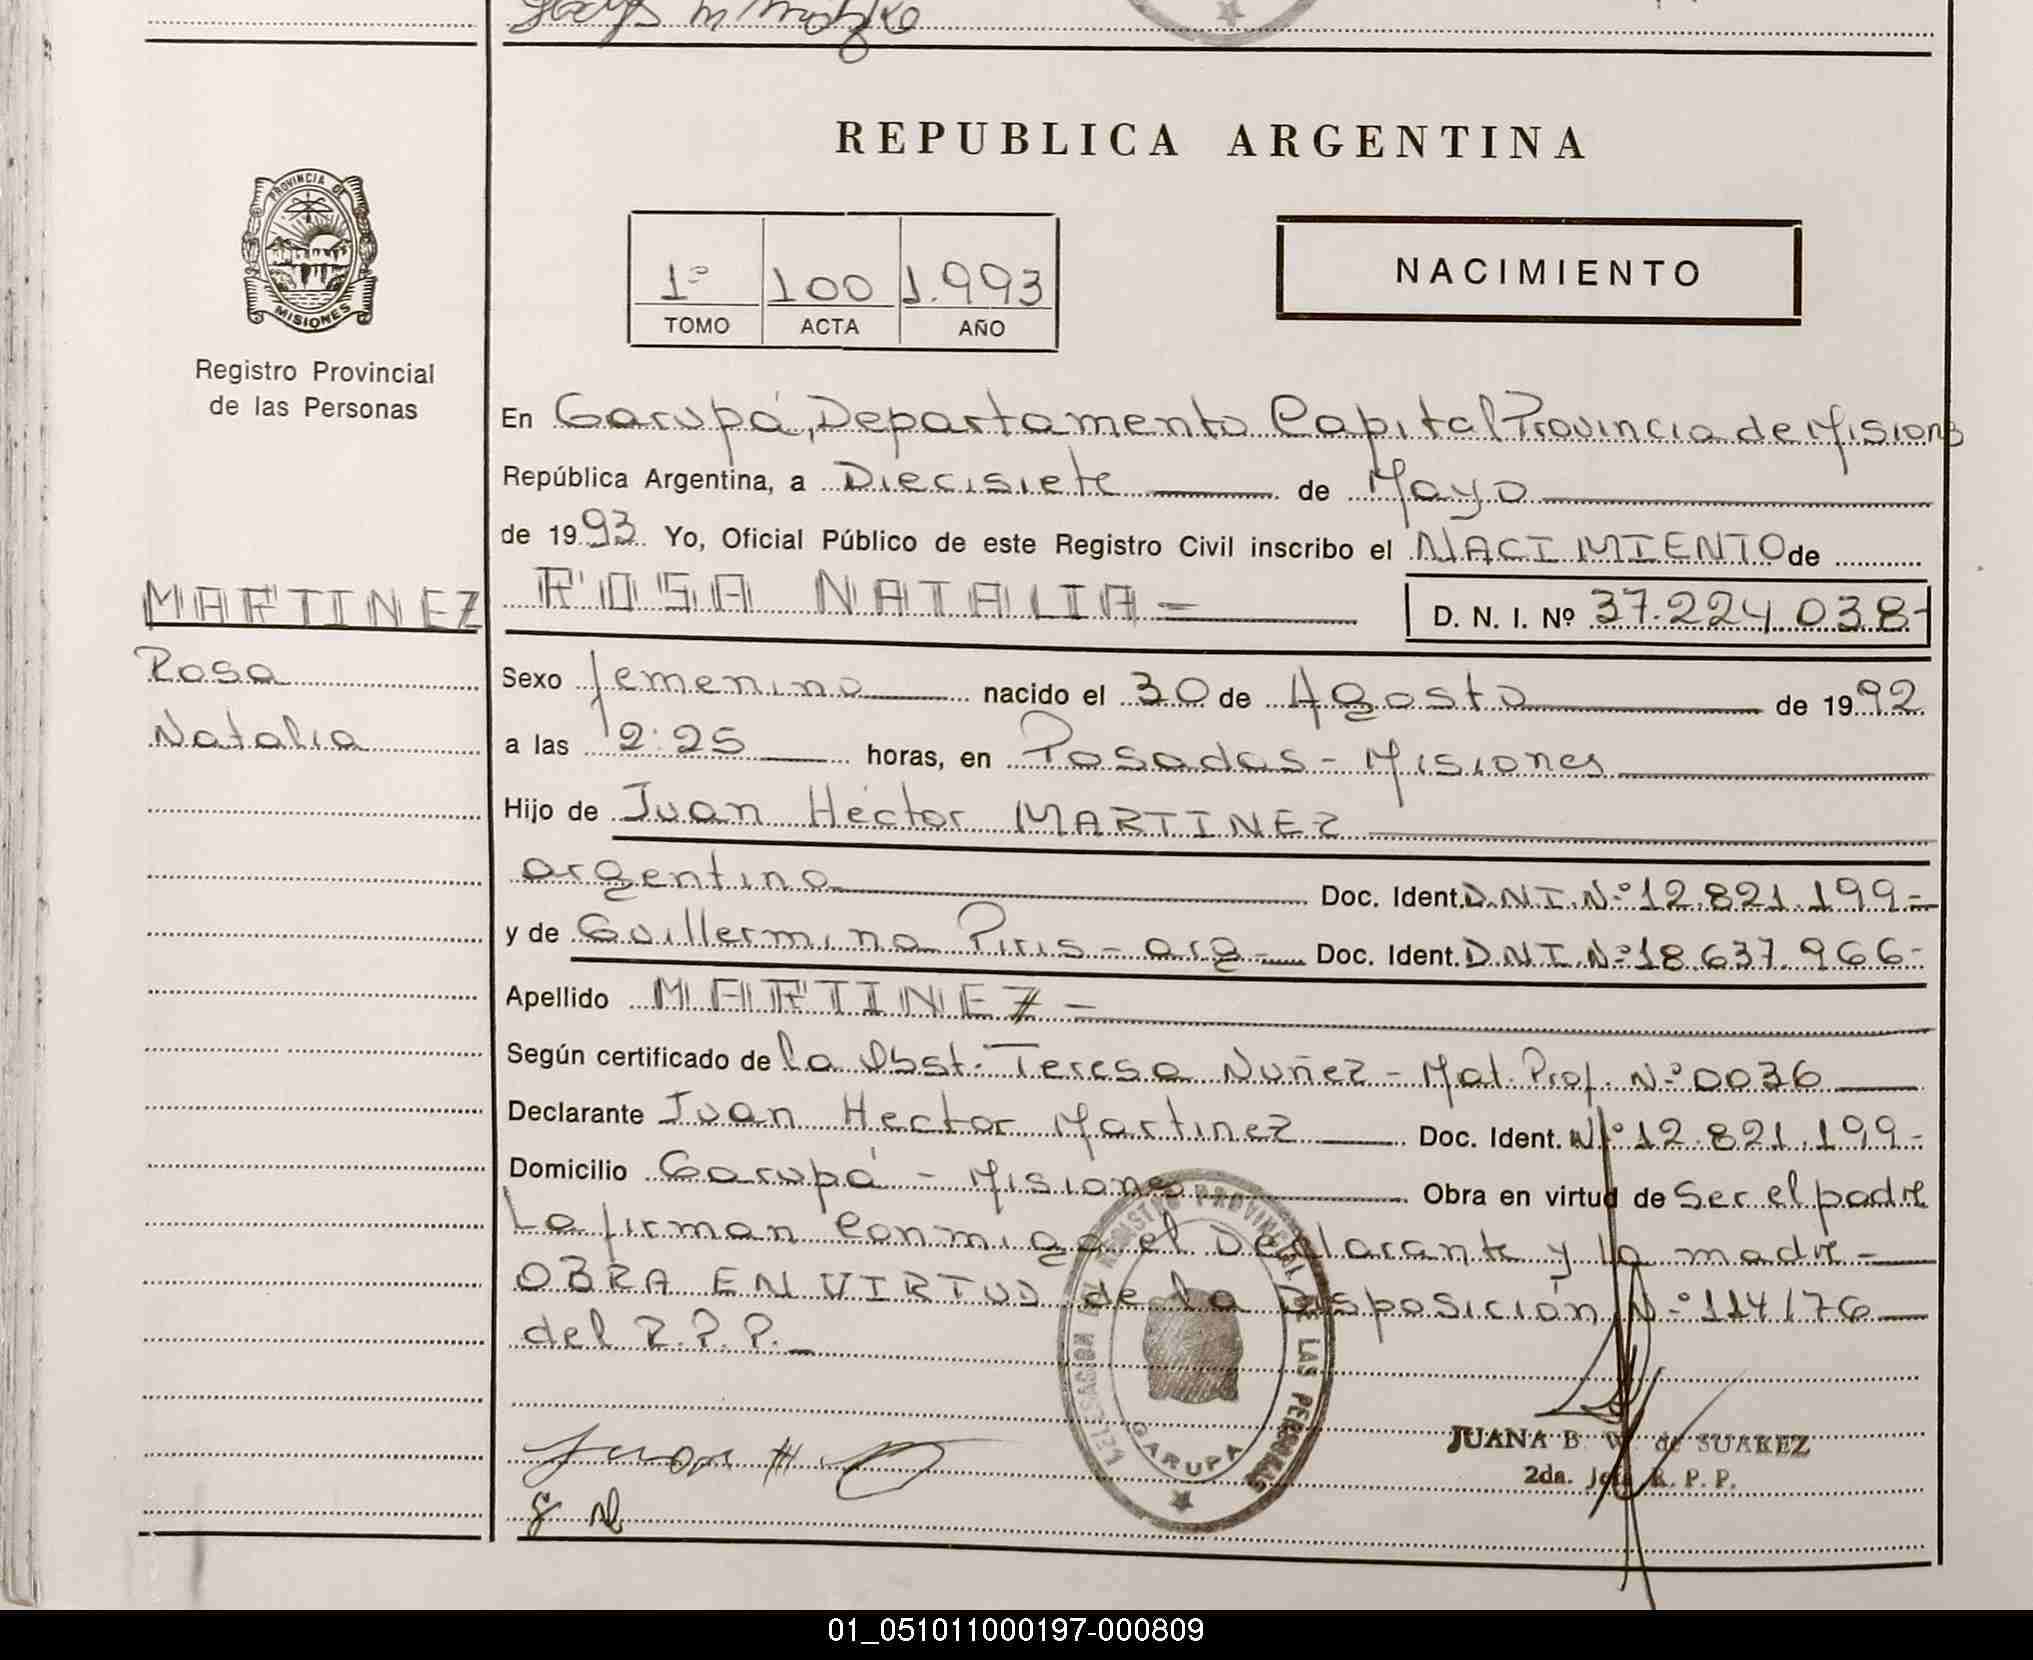 REPUBLICA ARGENTINA
PROVINCIA DE
MISIONES
Registro Provincial
de las Personas
1º 100 1.993
TOMO ACTA AÑO
NACIMIENTO
En Garupá, Departamento Capital Provincia de Misiones
República Argentina, a Diecisiete de Mayo
de 1993 Yo, Oficial Público de este Registro Civil inscribo el NACIMIENTO de
MARTINEZ
Rosa
Natalia
ROSA NATALIA = D. N. I. Nº 37.224.038-
Sexo femenino nacido el 30 de Agosto de 1992
a las 12:25 horas, en Posadas - Misiones
Hijo de Juan Héctor MARTINEZ
argentino Doc. Ident. D.N.I. Nº 12.821.199=
y de Guillermina Piris - arg - Doc. Ident. D.N.I. Nº 18.637.966-
Apellido MARTINEZ =
Según certificado de la Obst. Teresa Nuñez - Mat. Prof. Nº 0036
Declarante Juan Hector Martinez Doc. Ident. Nº 12.821.199-
Domicilio Garupá - Misiones Obra en virtud de Ser el padre
La firman conmigo el Declarante y la madre =
OBRA EN VIRTUD de la Disposición Nº 114/76
del R.P.P.
DELEGACION DEL REGISTRO PROVINCIAL DE LAS PERSONAS
GARUPA
Juan H
JUANA B. W. de SUAREZ
2da. Jefe R. P. P.
01_051011000197-000809